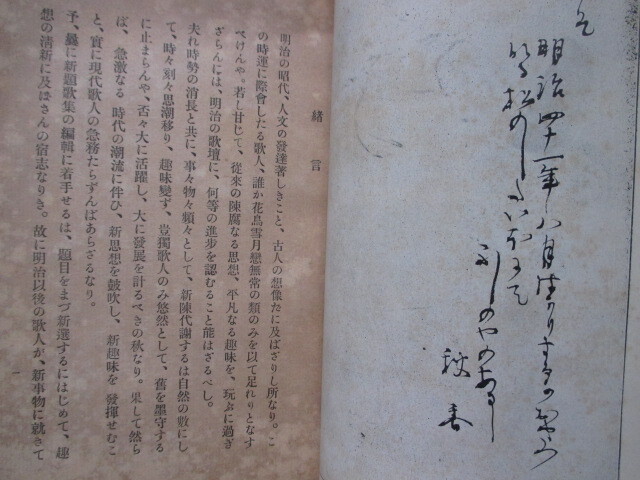 明治四十一年八月
松のした
のやのあるし
秋香
緒言
明治の昭代、人文の發達著しきこと、古人の想像だに及ばざりし所なり。こ
の時運に際會したる歌人、誰か花鳥雪月戀無常の類のみを以て足れりとなす
べけんや。若し甘じて、從來の陳腐なる思想、平凡なる趣味を、玩ぶに過ぎ
ざらんには、明治の歌壇に、何等の進步を認むること能はざるべし。
夫れ時勢の消長と共に、事々物々頻々として、新陳代謝するは自然の數にし
て、時々刻々思潮移り、趣味變ず、豈獨歌人のみ悠然として、舊を墨守する
に止まらんや、否々大に活躍し、大に發展を計るべきの秋なり。果して然ら
ば、急激なる時代の潮流に伴ひ、新思想を鼓吹し、新趣味を發揮せむこ
と、實に現代歌人の急務たらずんばあらざるなり。
予、曩に新題歌集の編輯に着手せるは、題目をまづ新選するにはじめて、趣
想の清新に及ぼさんの宿志なりき。故に明治以後の歌人が、新事物に就きて
一